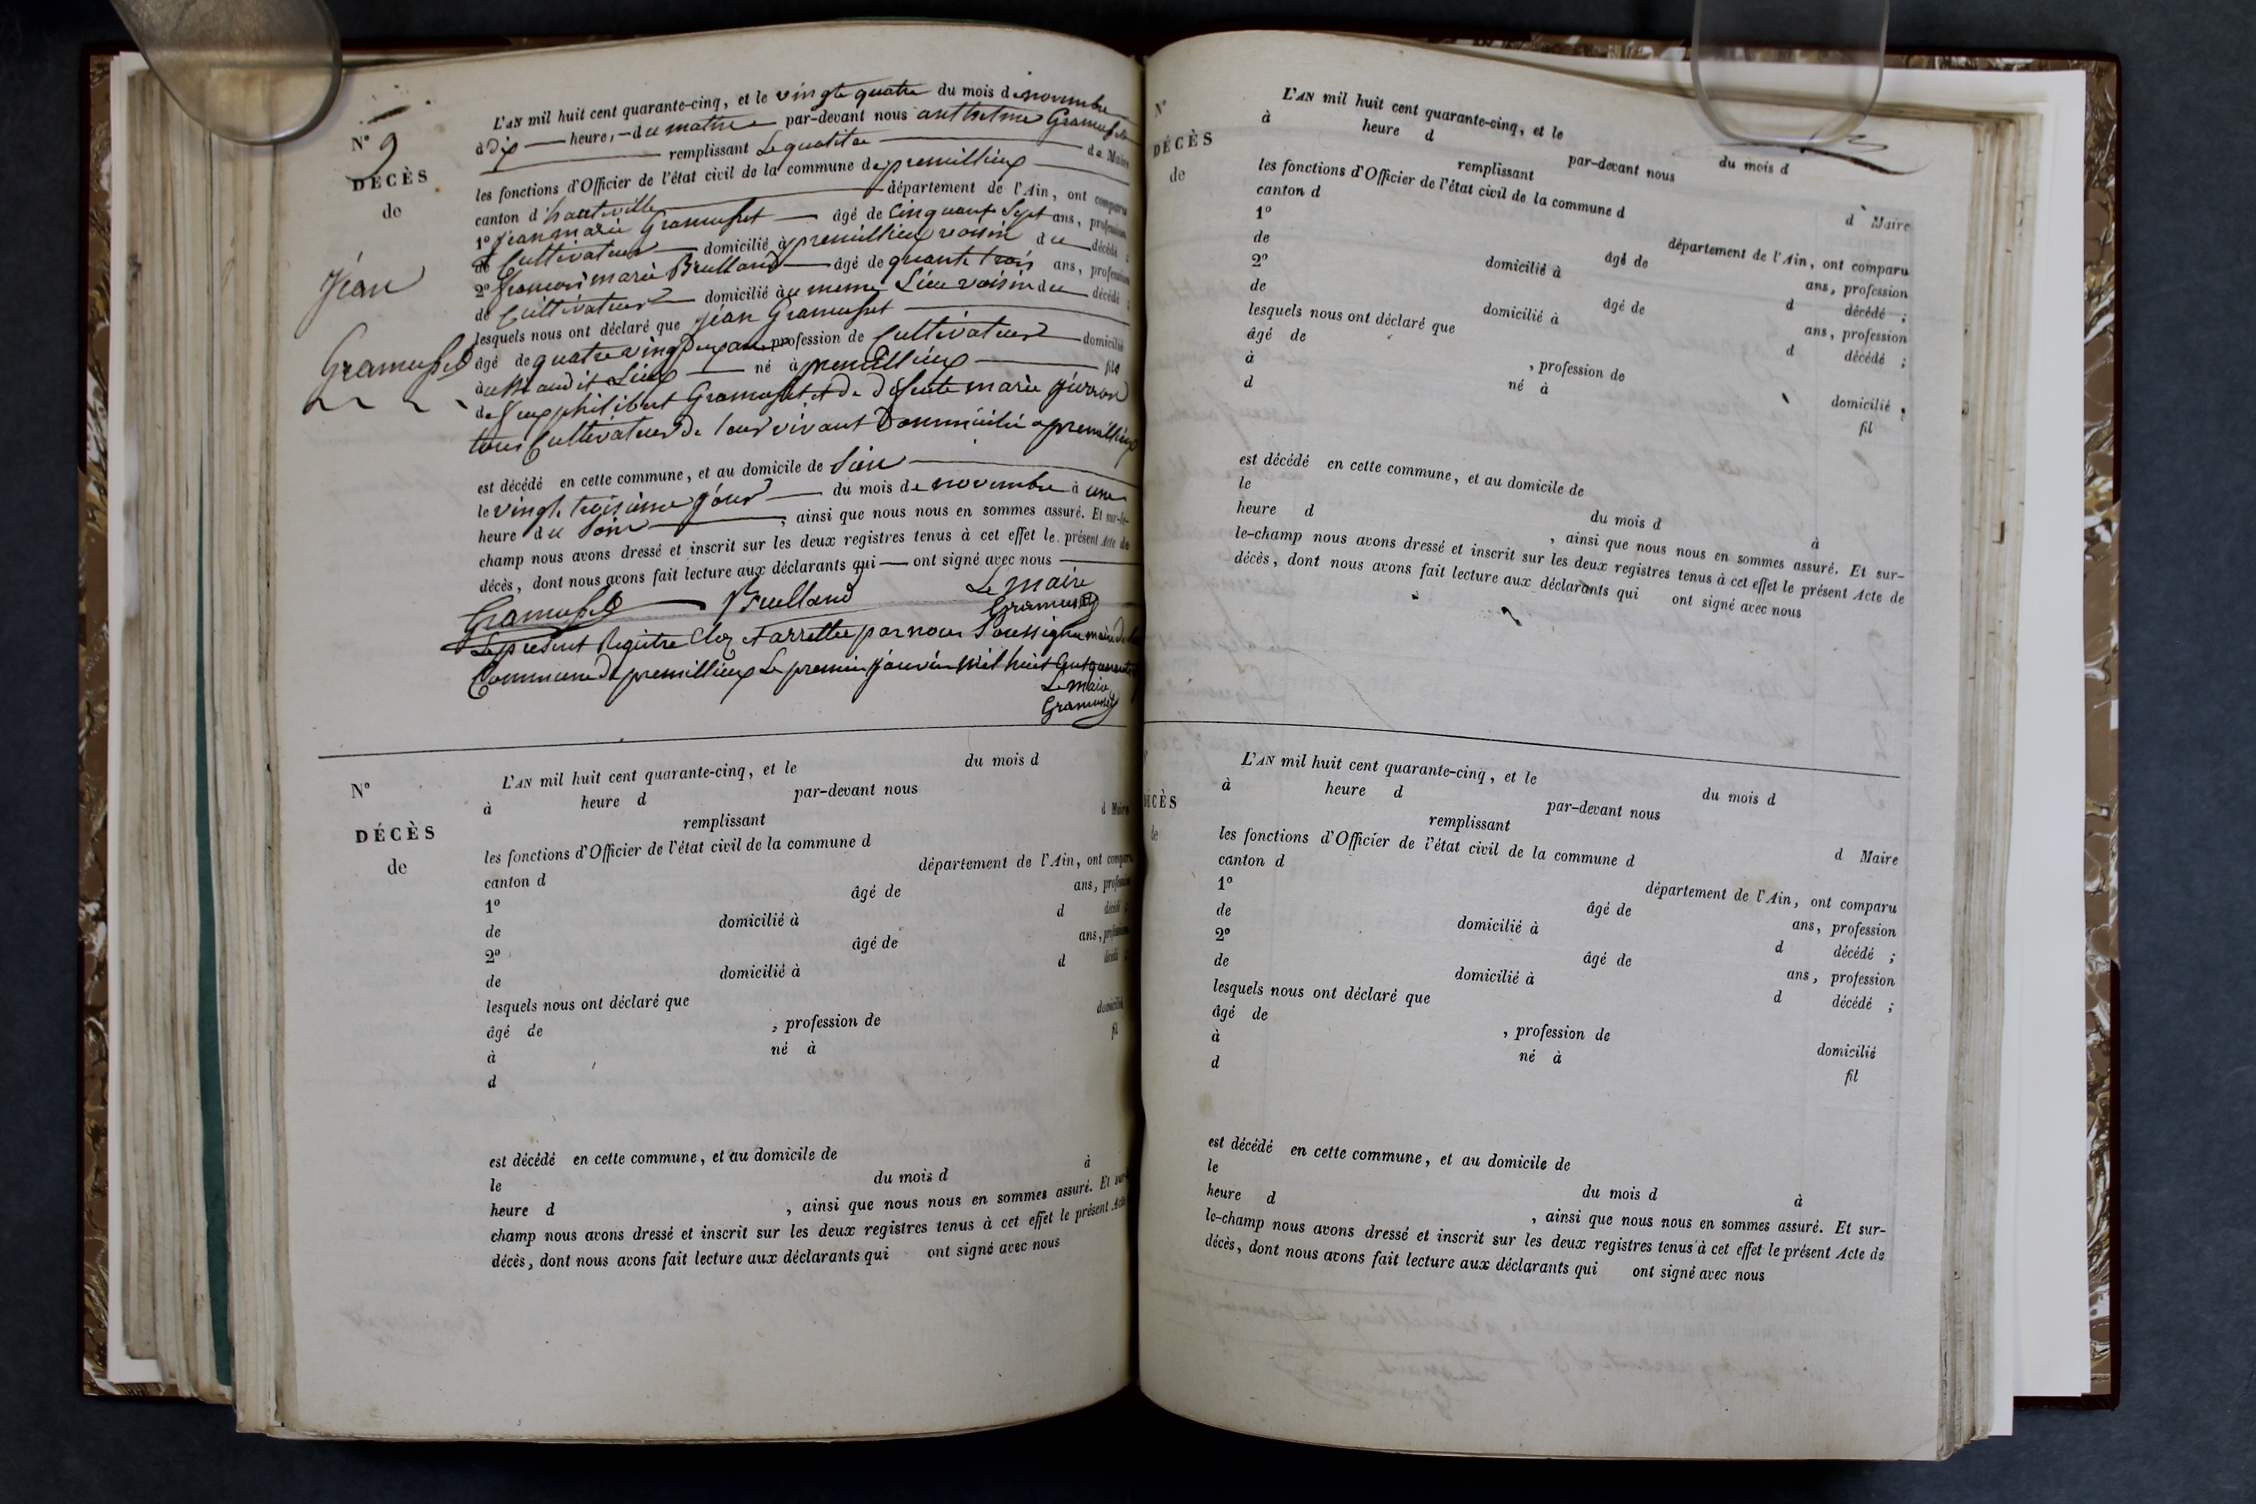 N° 9
DÉCÈS
de
Jéan
Gramusset
L'AN mil huit cent quarante-cinq, et le vingte quatre du mois de novembre
à Dix heure, du matin par-devant nous anthelme Gramusset
remplissant Le qualitee de Maire
les fonctions d'Officier de l'état civil de la commune de premillieux
canton d'hauteville département de l'Ain, ont comparu
1° Jean marie Gramusset âgé de Cinquante Sept ans, profession
de Cultivateur domicilié à premillieux voisin du décédé ;
2° francois marie Brulland âgé de quarante trois ans, profession
de Cultivateur domicilié au meme Lieu voisin du décédé ;
lesquels nous ont déclaré que Jéan Gramusset
âgé de quatre vingt Deux ans profession de Cultivateur domicilié
à audit Lieux né à premillieux fils
de feux philibert Gramusset et de Defunte marie
tous Cultivateur de leur vivant Dommicilié a premillieux
est décédé en cette commune, et au domicile de Sien
le vingt troisième jour du mois de novembre à une
heure du Soir, ainsi que nous nous en sommes assuré. Et sur-le-
champ nous avons dressé et inscrit sur les deux registres tenus à cet effet le présent Acte de
décès, dont nous avons fait lecture aux déclarants qui ont signé avec nous
Gramusset Brulland Le maire
Gramusset
Le present Registre Clos et arrettee par nous Soussigne maire de la
Commune de premillieux Le premier janvier mil huit Cent quarante
Le maire
Gramusset
N°
DÉCÈS
de
L'AN mil huit cent quarante-cinq, et le du mois d
à heure d par-devant nous
remplissant d Maire
les fonctions d'Officier de l'état civil de la commune d
canton d département de l'Ain, ont comparu
1° âgé de ans, profession
de domicilié à d décédé ;
2° âgé de ans, profession
de domicilié à d décédé ;
lesquels nous ont déclaré que
âgé de , profession de domicilié
à né à fil
d
est décédé en cette commune, et au domicile de
le du mois d à
heure d , ainsi que nous nous en sommes assuré. Et sur-
champ nous avons dressé et inscrit sur les deux registres tenus à cet effet le présent Acte
décès, dont nous avons fait lecture aux déclarants qui ont signé avec nous
N°
DÉCÈS
de
L'AN mil huit cent quarante-cinq, et le du mois d
à heure d par-devant nous
remplissant d Maire
les fonctions d'Officier de l'état civil de la commune d
canton d département de l'Ain, ont comparu
1° âgé de ans, profession
de domicilié à d décédé ;
2° âgé de ans, profession
de domicilié à d décédé ;
lesquels nous ont déclaré que
âgé de , profession de domicilié
à né à fil
d
est décédé en cette commune, et au domicile de
le du mois d à
heure d , ainsi que nous nous en sommes assuré. Et sur-
le-champ nous avons dressé et inscrit sur les deux registres tenus à cet effet le présent Acte de
décès, dont nous avons fait lecture aux déclarants qui ont signé avec nous
DÉCÈS
de
L'AN mil huit cent quarante-cinq, et le du mois d
à heure d par-devant nous
remplissant d Maire
les fonctions d'Officier de l'état civil de la commune d
canton d département de l'Ain, ont comparu
1° âgé de ans, profession
de domicilié à d décédé ;
2° âgé de ans, profession
de domicilié à d décédé ;
lesquels nous ont déclaré que
âgé de , profession de domicilié
à né à fil
d
est décédé en cette commune, et au domicile de
le du mois d à
heure d , ainsi que nous nous en sommes assuré. Et sur-
le-champ nous avons dressé et inscrit sur les deux registres tenus à cet effet le présent Acte de
décès, dont nous avons fait lecture aux déclarants qui ont signé avec nous